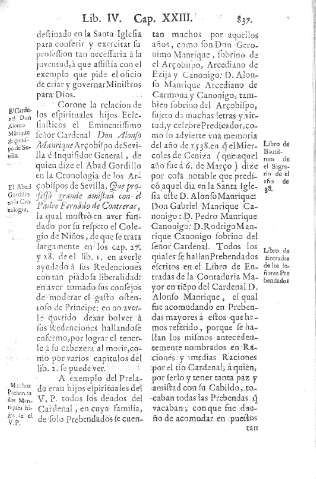 Lib. IV. Cap. XXIII. 837.
destinado en la Santa Iglesia
para conferir y exercitar su
profession tan necessaria à la
juventud, à que assistia con el
exemplo que pide el oficio
de criar y governar Ministros
para Dios.
Corone la relacion de
los espirituales hijos Ecle-
siasticos el Eminentissimo
señor Cardenal Don Alonso
Manrique Arçobispo de Sevi-
lla é Inquisidor General, de
quien dize el Abad Gordillo
en la Cronologia de los Ar-
çobispos de Sevilla. Que pro-
fessò grande amistad con el
Padre Fernãdo de Contreras,
la qual mostrò en aver fun-
dado por su respeto el Cole-
gio de Niños, de que se trata
largamente en los cap. 27.
y 28. de el lib. 1. en averle
ayudado à sus Redenciones
con tan piadosa liberalidad:
en aver tomado sus consejos
de moderar el gasto osten-
toso de Principe: en no aver-
le querido dexar bolver à
sus Redenciones hallandose
enfermo, por lograr el tener-
le à su cabezera al morir, co-
mo por varios capitulos del
lib. 2. se puede ver.
A exemplo del Prela-
do eran hijos espirituales del
V. P. todos los deudos del
Cardenal, en cuya familia,
de solo Prebendados se cuen-
El Carde-
nal Don
Alonso
Manrique
Arçobis-
po de Se-
villa.
El Abad
Gordillo
en la Cro-
nologia.
Muchos
Prebenda
dos Man-
riques hi-
jos de el
V. P.
tan muchos por aquellos
años, como son Don Gero-
nimo Manrique, sobrino de
el Arçobispo, Arcediano de
Ezija y Canonigo: D. Alon-
so Manrique Arcediano de
Carmona y Canonigo, tam-
bien sobrino del Arçobispo,
sujeto de muchas letras y vir-
tud, y celebre Predicador, co-
mo lo advierte una memoria
del año de 1538. en el Mier-
coles de Ceniza (que aquel
año fue à 6. de Março) dize
por cosa notable que predi-
cò aquel dia en la Santa Igle-
sia este D. Alonso Manrique:
Don Gabriel Manrique Ca-
nonigo: D. Pedro Manrique
Canonigo: D. Rodrigo Man-
rique Canonigo sobrino del
señor Cardenal. Todos los
quales se hallan Prebendados
escritos en el Libro de En-
tradas de la Contaduria Ma-
yor en tiẽpo del Cardenal D.
Alonso Manrique, el qual
fue acomodando en Preben-
das mayores à estos que he-
mos referido, porque se ha-
llan los mismos antecedente-
mente nombrados en Ra-
ciones y medias Raciones
por el tio Cardenal; à quien,
por serlo y tener tanta paz y
amistad con su Cabildo, to-
caban todas las Prebendas q̃
vacaban; conque fue due-
ño de acomodar en puestos
tan
Libro de
entradas
de los se-
ñores Pre
bendados